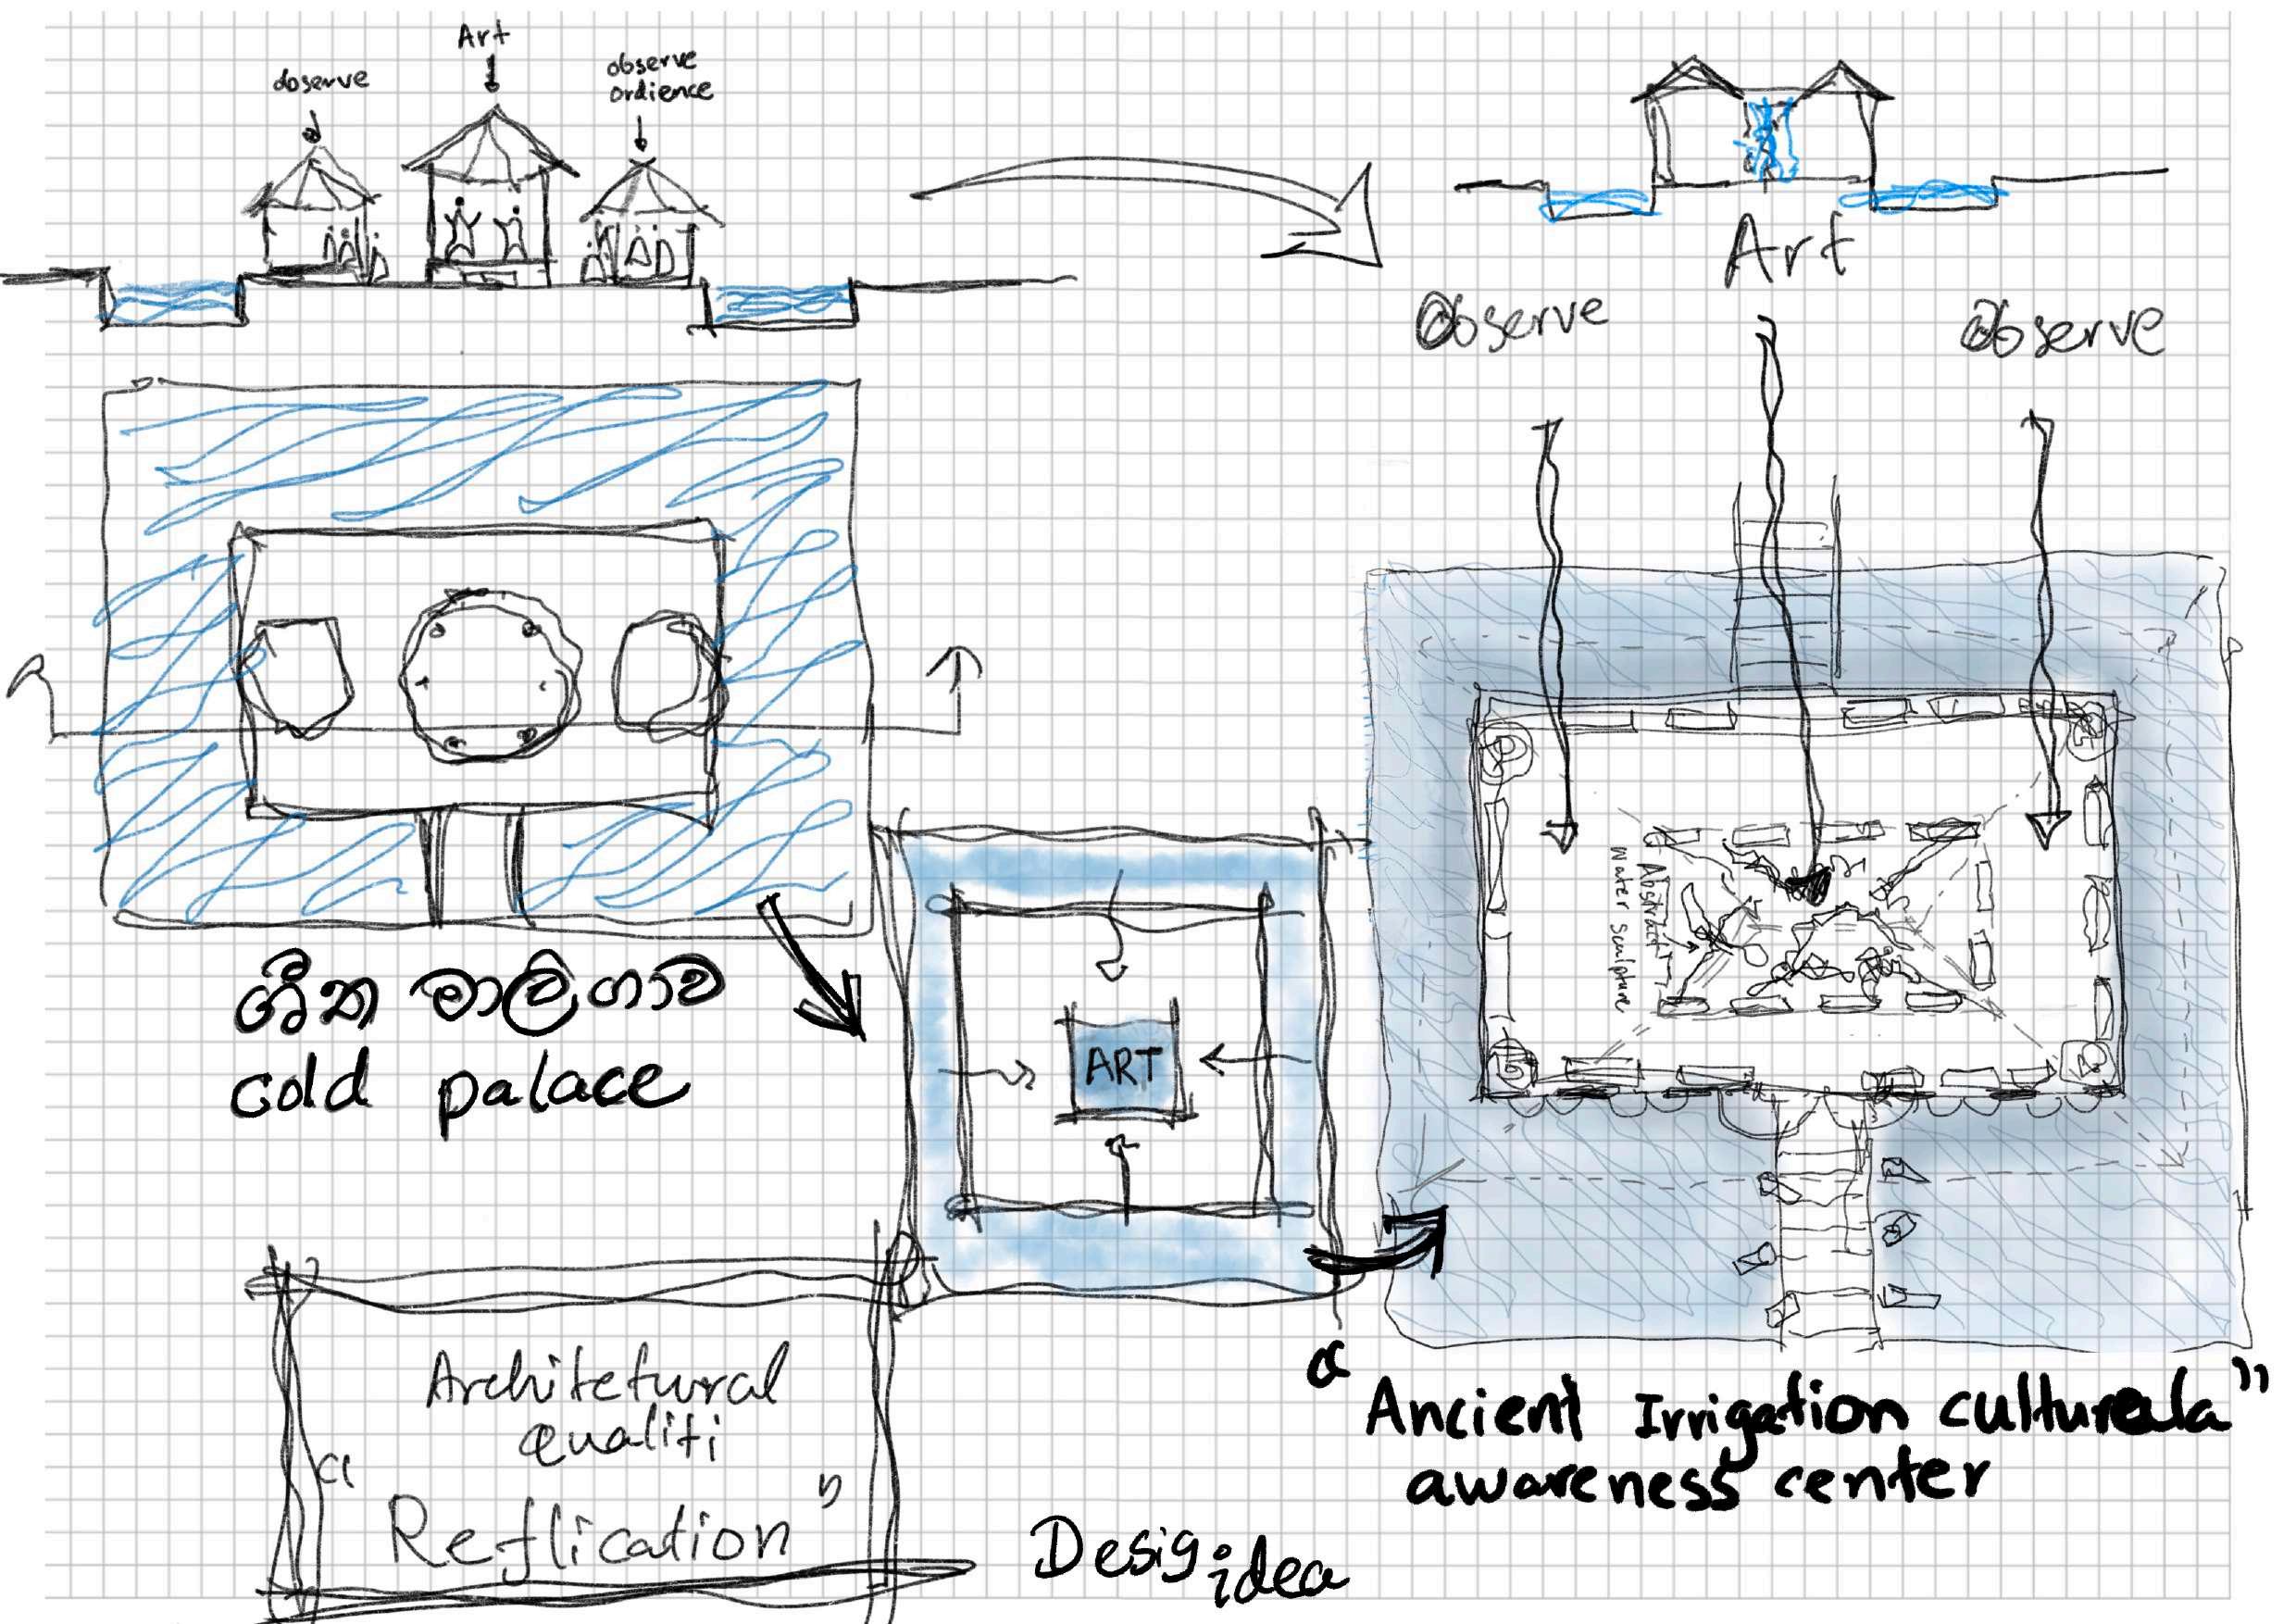 Art
observe
observe
ordience
Art
Observe
Observe
ශීත මාලිගාව
cold palace
ART
Abstract
water sculpture
Architetural
qualiti
"Reflication"
Desig idea
"Ancient Irrigation culturala"
awareness center